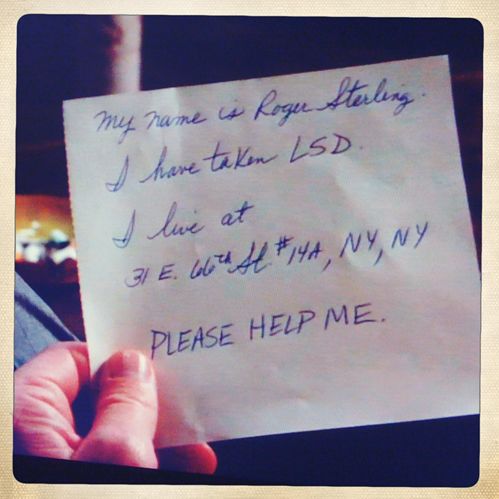 My name is Roger Sterling.
I have taken LSD.
I live at
31 E. 66th St. #14A, NY, NY
PLEASE HELP ME.